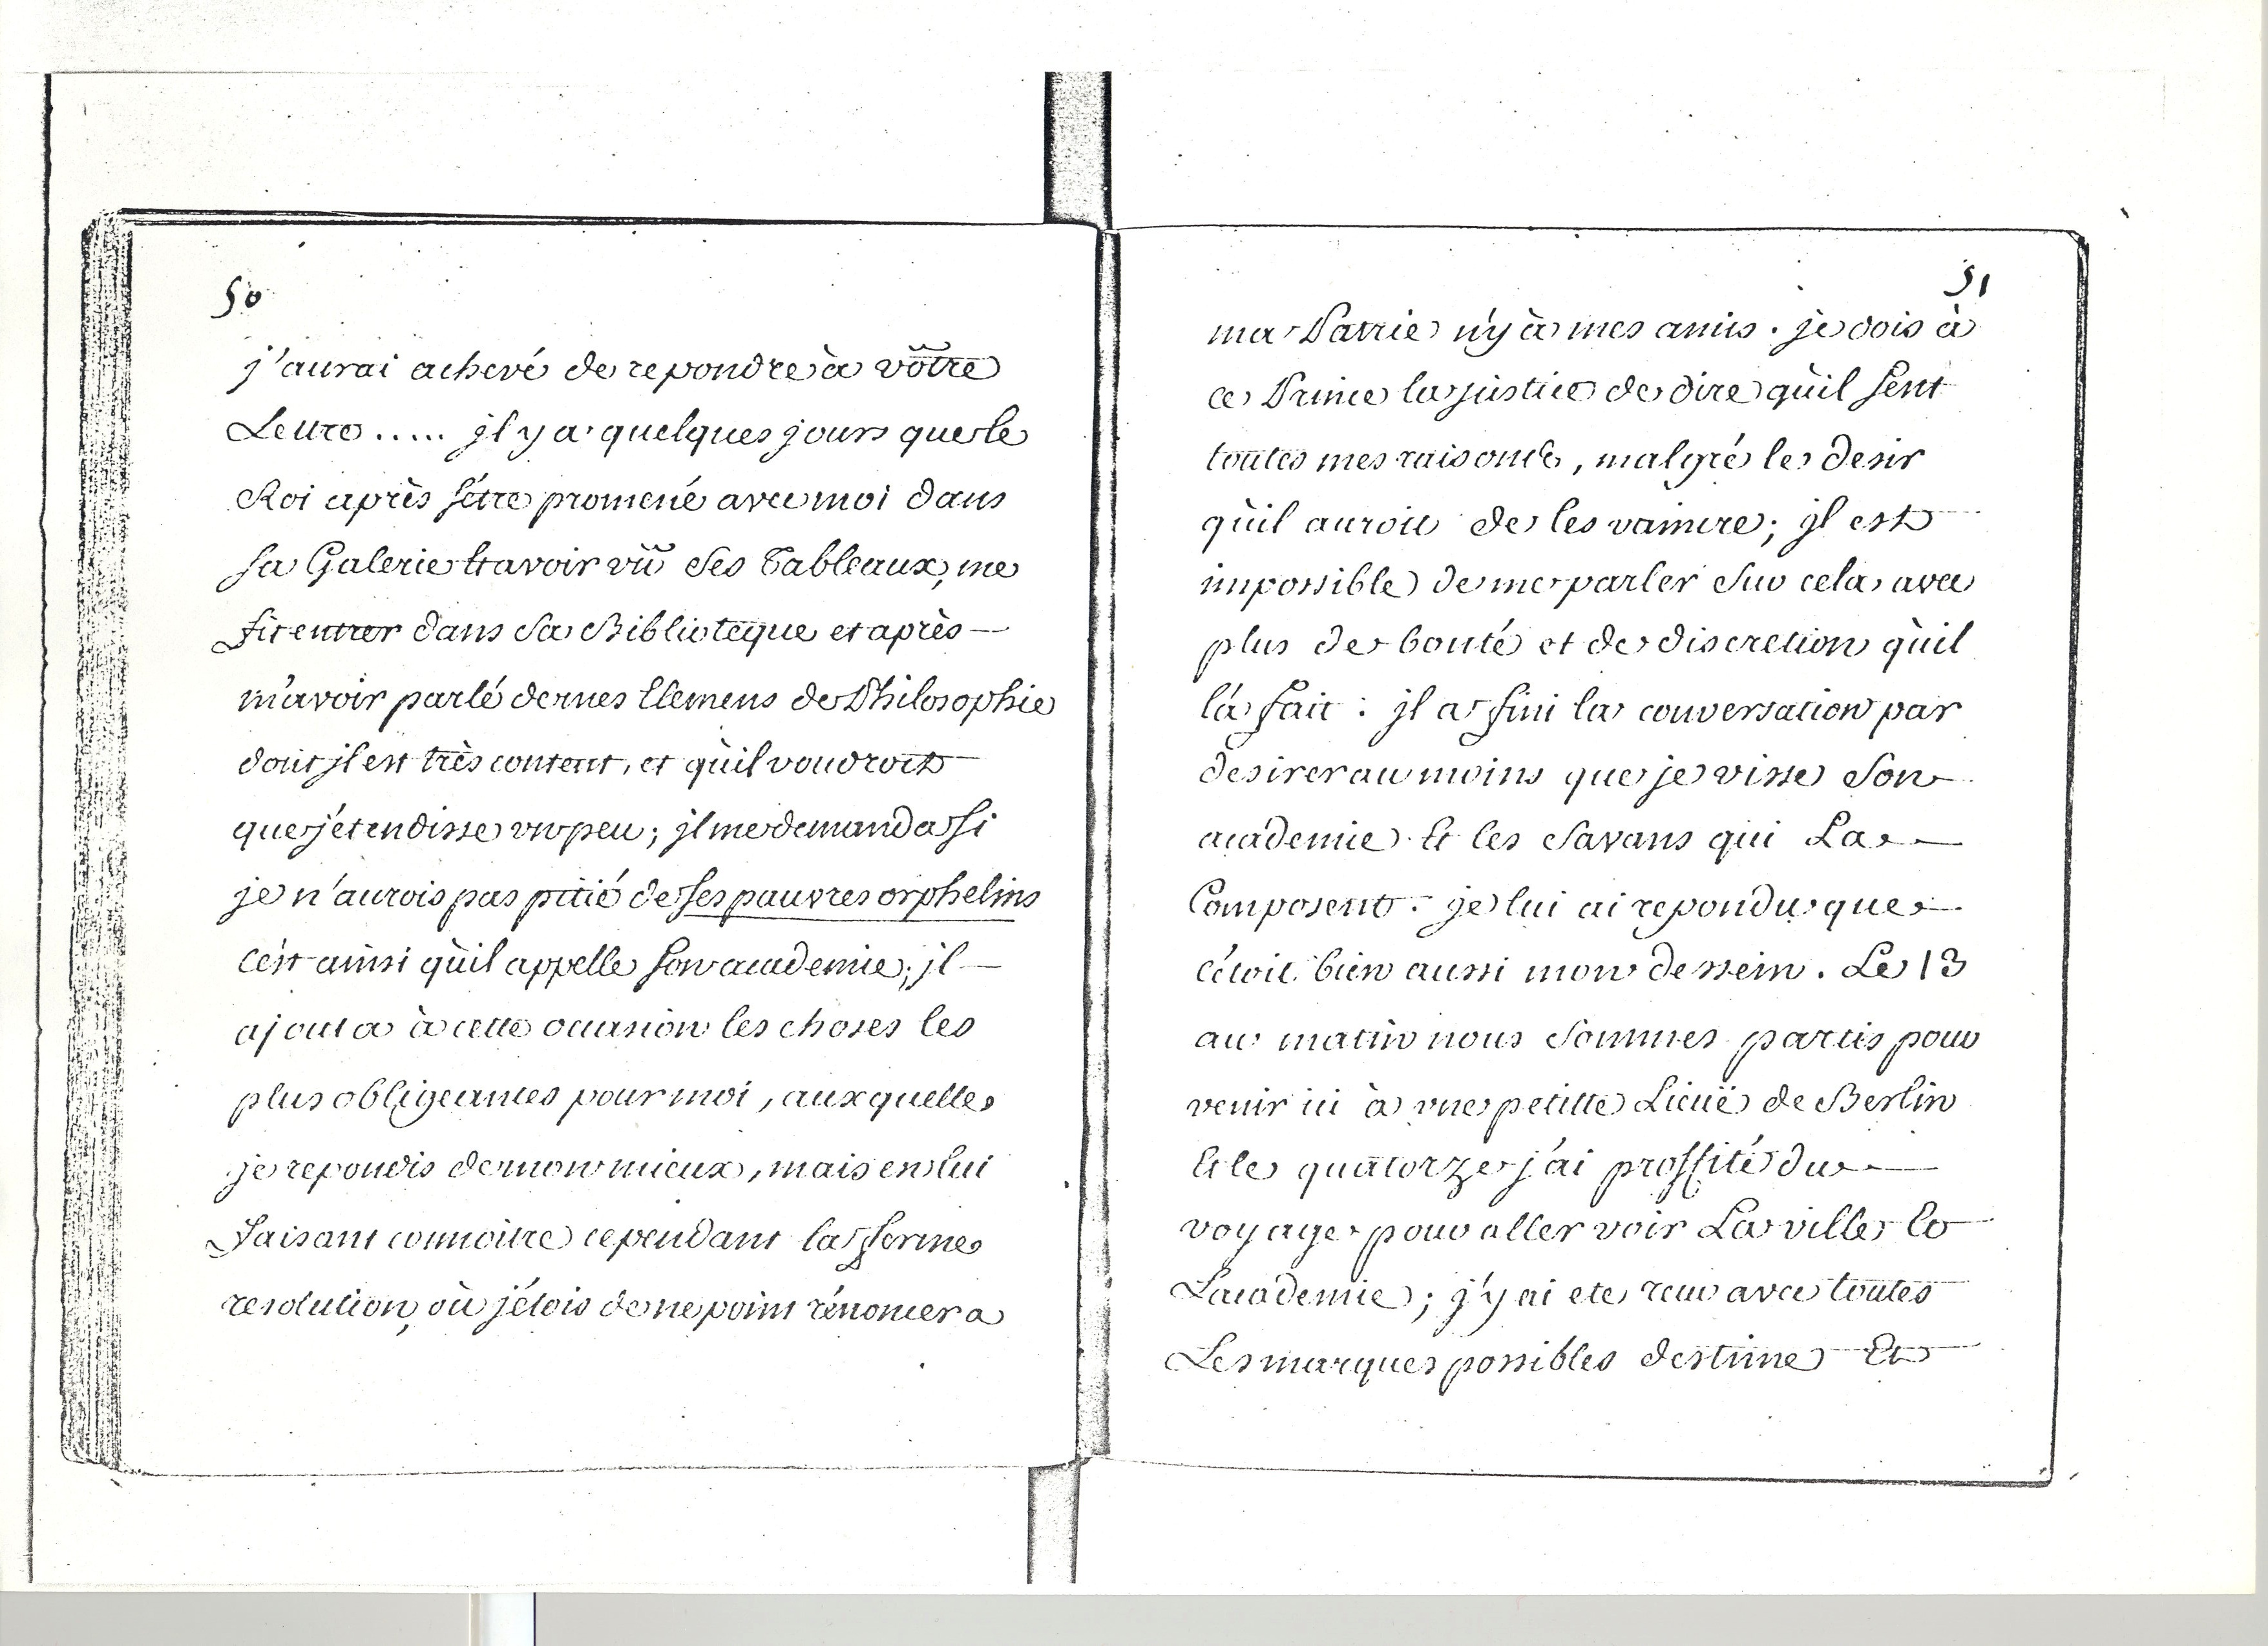 50
j'aurai achevé de repondre à vôtre
Lettre ..... jl y a quelques jours que le
Roi après s'être promené avec moi dans
sa Galerie Et avoir vû ses Tableaux, me
fit entrer dans sa Biblioteque et après —
m'avoir parlé de mes Elemens de Philosophie
dont jl est très content, et qu'il voudroit
que j'étendisse vn peu; jl me demanda si
je n'aurois pas pitié de ses pauvres orphelins
c'est ainsi qu'il appelle son academie; jl —
ajouta à cette occasion les choses les
plus obligeantes pour moi, auxquelles
je repondis de mon mieux, mais en lui
faisant connoitre cependant la ferme
resolution, où j'étois de ne point rénoncer a
51
ma Patrie n'y à mes amis. je dois à
ce Prince la justice de dire qu'il sent
toutes mes raisons, malgré le desir
qu'il auroit de les vaincre; jl est
impossible de me parler sur cela avec
plus de bonté et de discretion qu'il
l'a fait: jl a fini la conversation par
desirer au moins que je visse son
academie Et les savans qui La —
Composent: je lui ai repondu que —
c'étoit bien aussi mon dessein. Le 13
au matin nous sommes partis pour
venir ici à vne petitte Lieuë de Berlin
Et le quatorze j'ai proffité du —
voyage pour aller voir La ville Et
L'academie; j'y ai ete recu avec toutes
Les marques possibles destime Et